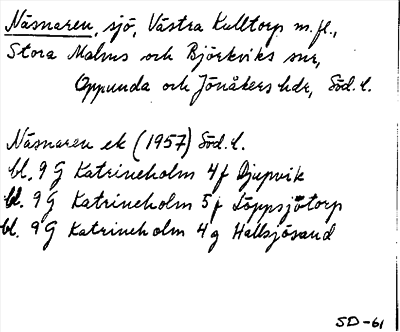 Näsnaren, sjö, Västra Kulltorp m.fl.,
Stora Malms och Björkviks snr,
Oppunda och Jönåkers hdr, Söd. l.
Näsnaren ek (1957) Söd. l.
bl. 9 G Katrineholm 4 f Djupvik
bl. 9 G Katrineholm 5 f Löppsjötorp
bl. 9 G Katrineholm 4 g Hallsjösand
SD-61